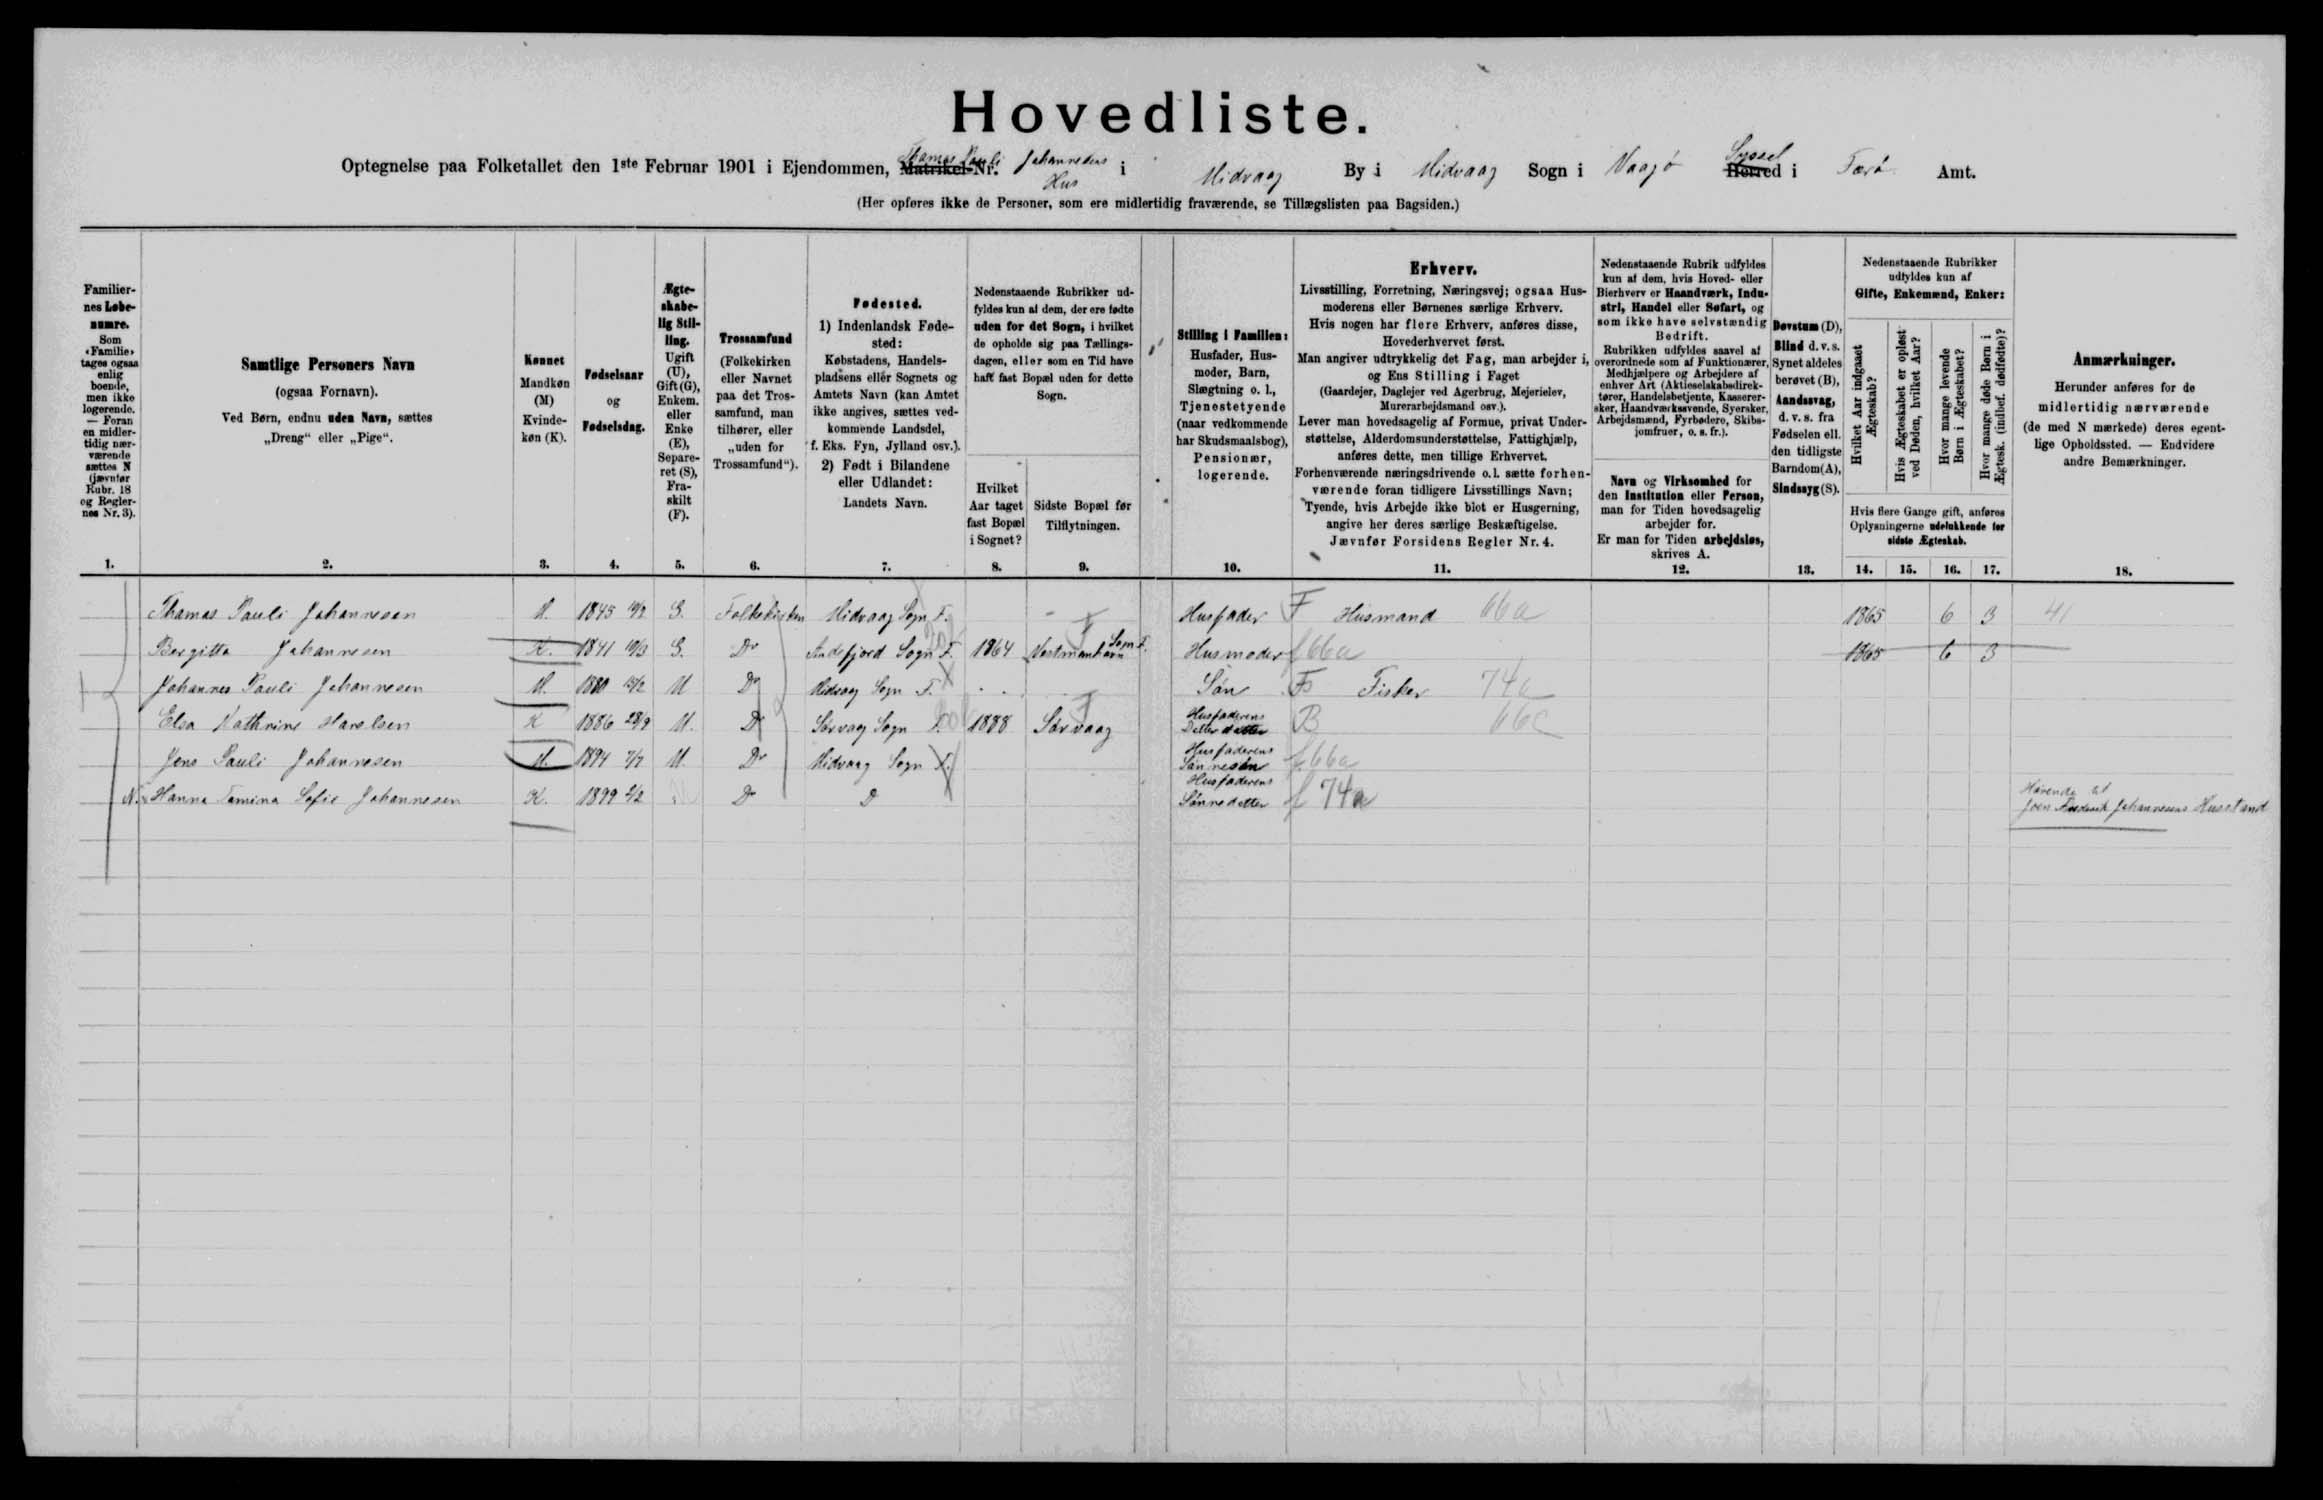 Hovedliste.
Optegnelse paa Folketallet den 1ste Februar 1901 i Ejendommen, Matrikel-Nr. Thomas Pauli Johannesens Hus i Midvaag By i Midvaag Sogn i Vaagø Herred Syssel i Færø Amt.
(Her opføres ikke de Personer, som ere midlertidig fraværende, se Tillægslisten paa Bagsiden.)
Familiernes Løbenumre.
Som «Familie» tages ogsaa enlig boende, men ikke logerende. — Foran en midlertidig nærværende sættes N (jævnfør Rubr. 18 og Reglernes Nr. 3).
1.
Samtlige Personers Navn
(ogsaa Fornavn).
Ved Børn, endnu uden Navn, sættes
„Dreng“ eller „Pige“.
2.
Kønnet
Mandkøn
(M)
Kvinde-
køn (K).
3.
Fødselsaar
og
Fødselsdag.
4.
Ægte-
skabe-
lig Stil-
ling.
Ugift
(U),
Gift (G),
Enkem.
eller
Enke
(E),
Separe-
ret (S),
Fra-
skilt
(F).
5.
Trossamfund
(Folkekirken
eller Navnet
paa det Tros-
samfund, man
tilhører, eller
„uden for
Trossamfund“).
6.
Fødested.
1) Indenlandsk Føde-
sted:
Købstadens, Handels-
pladsens eller Sognets og
Amtets Navn (kan Amtet
ikke angives, sættes ved-
kommende Landsdel,
f. Eks. Fyn, Jylland osv.).
2) Født i Bilandene
eller Udlandet:
Landets Navn.
7.
Nedenstaaende Rubrikker ud-
fyldes kun af dem, der ere fødte
uden for det Sogn, i hvilket
de opholde sig paa Tællings-
dagen, eller som en Tid have
haft fast Bopæl uden for dette
Sogn.
Hvilket
Aar taget
fast Bopæl
i Sognet?
8.
Sidste Bopæl før
Tilflytningen.
9.
Stilling i Familien:
Husfader, Hus-
moder, Barn,
Slægtning o. l.,
Tjenestetyende
(naar vedkommende
har Skudsmaalsbog),
Pensionær,
logerende.
10.
Erhverv.
Livsstilling, Forretning, Næringsvej; ogsaa Hus-
moderens eller Børnenes særlige Erhverv.
Hvis nogen har flere Erhverv, anføres disse,
Hovederhvervet først.
Man angiver udtrykkelig det Fag, man arbejder i,
og Ens Stilling i Faget
(Gaardejer, Daglejer ved Agerbrug, Mejerielev,
Murerarbejdsmand osv.).
Lever man hovedsagelig af Formue, privat Under-
støttelse, Alderdomsunderstøttelse, Fattighjælp,
anføres dette, men tillige Erhvervet.
Forhenværende næringsdrivende o. l. sætte forhen-
værende foran tidligere Livsstillings Navn;
Tyende, hvis Arbejde ikke blot er Husgerning,
angive her deres særlige Beskæftigelse.
Jævnfør Forsidens Regler Nr. 4.
11.
Nedenstaaende Rubrik udfyldes
kun af dem, hvis Hoved- eller
Bierhverv er Haandværk, Indu-
stri, Handel eller Søfart, og
som ikke have selvstændig
Bedrift.
Rubrikken udfyldes saavel af
overordnede som af Funktionærer,
Medhjælpere og Arbejdere af
enhver Art (Aktieselskabsdirek-
tører, Handelsbetjente, Kasserer-
sker, Haandværkssvende, Syersker,
Arbejdsmænd, Fyrbødere, Skibs-
jomfruer, o. s. fr.).
Navn og Virksomhed for
den Institution eller Person,
man for Tiden hovedsagelig
arbejder for.
Er man for Tiden arbejdsløs,
skrives A.
12.
Døvstum (D),
Blind d. v. s.
Synet aldeles
berøvet (B),
Aandssvag,
d. v. s. fra
Fødselen ell.
den tidligste
Barndom (A),
Sindssyg (S).
13.
Nedenstaaende Rubrikker
udfyldes kun af
Gifte, Enkemænd, Enker:
Hvilket Aar indgaaet Ægteskab?
Hvis Ægteskabet er opløst ved Døden, hvilket Aar?
Hvor mange levende Børn i Ægteskabet?
Hvor mange døde Børn i Ægtesk. (indbef. dødfødte)?
Hvis flere Gange gift, anføres
Oplysningerne udelukkende for
sidste Ægteskab.
14. 15. 16. 17.
Anmærkninger.
Herunder anføres for de
midlertidig nærværende
(de med N mærkede) deres egent-
lige Opholdssted. — Endvidere
andre Bemærkninger.
18.
Thomas Pauli Johannesen M. 1845 G. Folkekirken Midvaag Sogn F. Husfader F Husmand 66a 1865 6 3 41
Bergitta Johannesen K. 1841 G. Do Andefjord Sogn F. 1864 Vestmanhavn Sogn F. Husmoder f 66a 1865 6 3
Johannes Pauli Johannesen M. 1880 U Do Midvaag Sogn F. Søn Fisker 74a
Elsa Kathrine Harelsen K 1886 28/9 U. Do Sørvaag Sogn F. 1888 Sørvaag Husfaderens Datterdatter B 66c
Jens Pauli Johannesen M. 1894 7/7 U. Do Midvaag Sogn F. Husfaderens Sønnesøn f 66a
N. Hanna Tomina Sofie Johannesen K. 1899 U Do Do Husfaderens Sønnedatter f 74a Hørende til Joen Frederik Johannesens Husstand